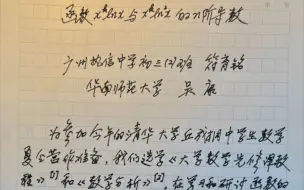 函数 x^k ln x 与 x^k ln x 的 n 阶导数
广州执信中学初三(2)班 符育铭
华南师范大学 吴康
为参加今年的清华大学丘成桐中学生数学
夏令营作准备，我们选学《大学数学先修课教
程》[1]和《数学分析》[2]，在学习和研讨函数的